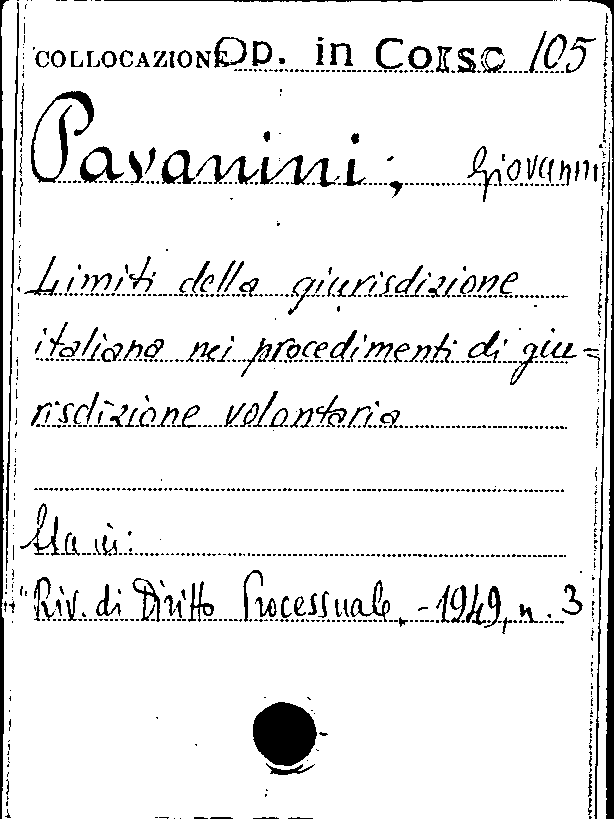 COLLOCAZIONE Op. in Corso 105
Pavanini, Giovanni
Limiti della giurisdizione
italiana nei procedimenti di giu=
risdizione volontaria
Sta in:
"Riv. di Diritto Processuale, - 1949, n. 3